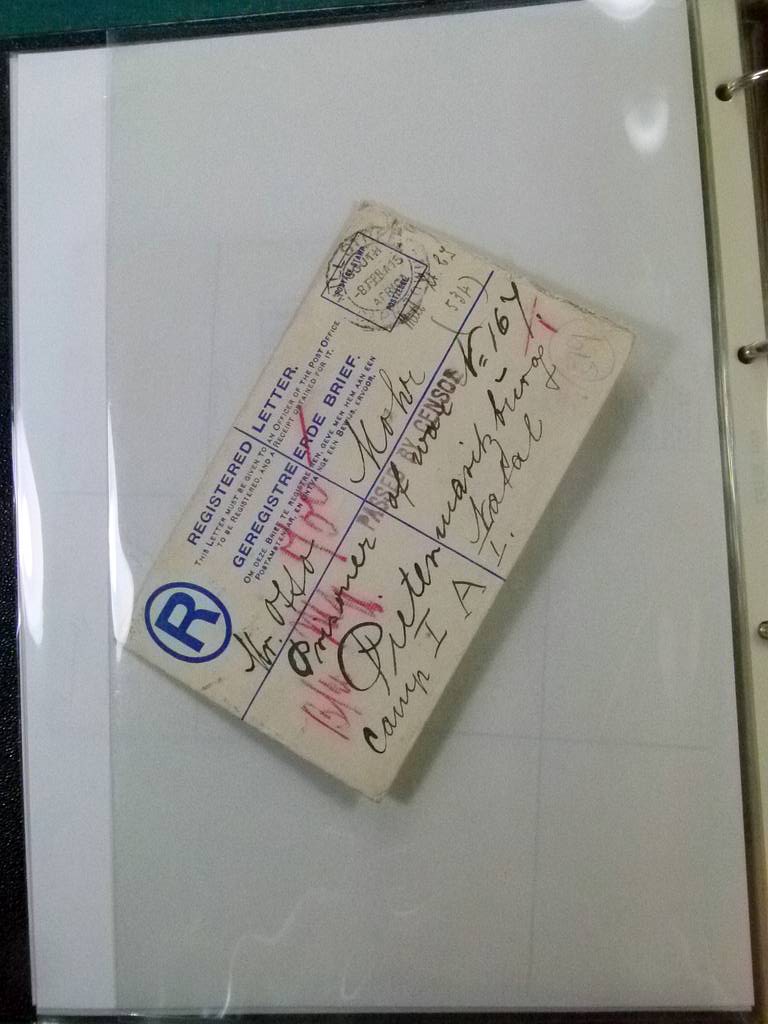 REGISTERED LETTER.
THIS LETTER MUST BE GIVEN TO AN OFFICER OF THE POST OFFICE
TO BE REGISTERED, AND A RECEIPT OBTAINED FOR IT.
GEREGISTREERDE BRIEF.
OM DEZE BRIEF TE REGISTREREN, GEVE MEN HEM AAN EEN
POSTAMBTENAAR, EN ONTVANGE EEN BEWIJS, ERVOOR.
SOUTH
8 FEB 15
AFRICA
POSTZEGEL
(53A)
R
Mr. Otto Mohr
Prisoner of war No 164
PASSED BY CENSOR
Pietermaritzburg
Camp I A I. Natal